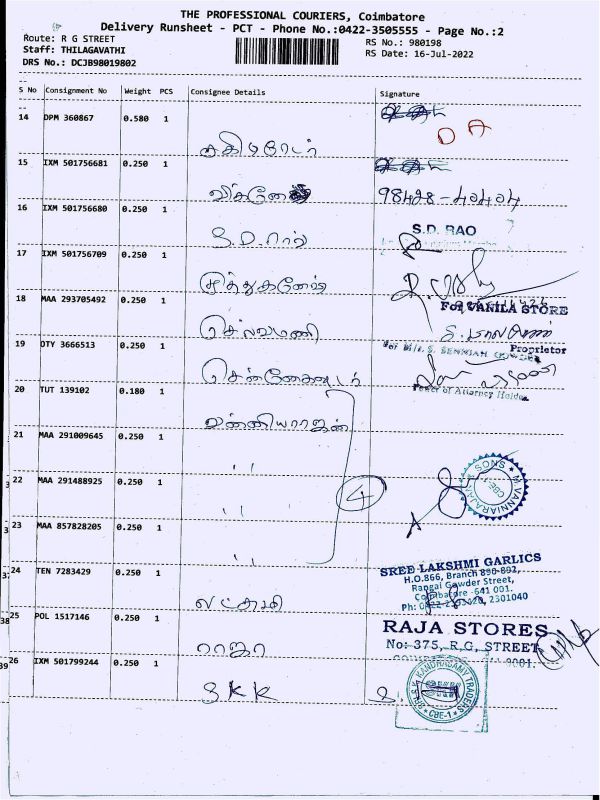 THE PROFESSIONAL COURIERS, Coimbatore
Delivery Runsheet - PCT - Phone No.:0422-3505555 - Page No.:2
Route: R G STREET
RS No.: 980198
Staff: THILAGAVATHI
RS Date: 16-Jul-2022
DRS No.: DCJB98019802
S No Consignment No Weight PCS Consignee Details Signature
14 DPM 360867 0.580 1
D A
15 IXM 501756681 0.250 1
98428-40404
16 IXM 501756680 0.250 1
S.D. RAO
S.D.ராவ்
17 IXM 501756709 0.250 1
முத்துகணேஷ்
18 MAA 293705492 0.250 1
For VANILA STORE
செல்வமணி
Proprietor
19 OTY 3666513 0.250 1
Power of Attorney Holder
20 TUT 139102 0.180 1
வன்னியராஜன்
21 MAA 291009645 0.250 1
''
22 MAA 291488925 0.250 1
4
''
M.VANNIARAJAN SONS
CBE-1
23 MAA 857828205 0.250 1
''
24 TEN 7283429 0.250 1
SREE LAKSHMI GARLICS
H.O.866, Branch 890-892,
Rangai Gowder Street,
Coimbatore -641 001.
லட்சுமி
25 POL 1517146 0.250 1
RAJA STORES
No: 375, R.G. STREET
ராஜா
26 IXM 501799244 0.250 1
SKK
KANDASAMY TRADERS
CBE-1